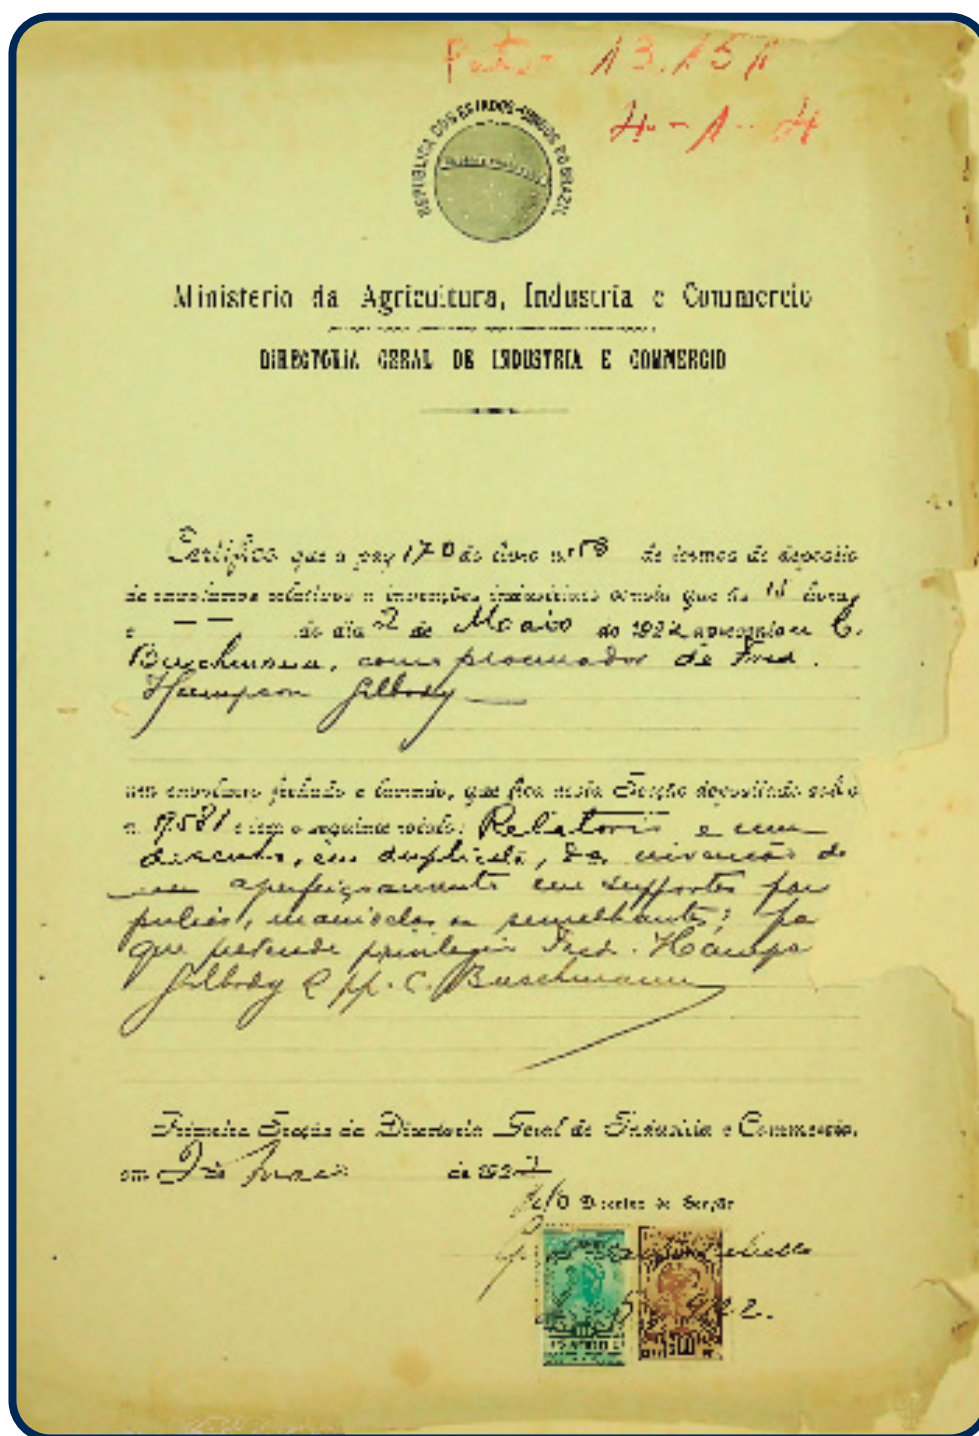 REPUBLICA DOS ESTADOS-UNIDOS DO BRAZIL
Ministerio da Agricultura, Industria e Commercio
DIRECTORIA GERAL DE INDUSTRIA E COMMERCIO
Certifico que a pag 170 do livro n. 58 de termos de deposito
de envolucros relativos a invenções industriaes consta que ás horas
e — — do dia 2 de Maio de 1922 apresentou C.
Buschmann, como procurador de Fred.
Hampson Gilbody
um envolucro fechado e lacrado, que fica nesta Secção depositado sob o
n. 19581 e tem o seguinte rotulo: Relatorio e um
desenho, em duplicata, da invenção de
aperfeiçoamento em supportes
polias, manivelas e semelhantes;
que pretende privilegio Fred. Hamps
Gilbody e pp. C. Buschmann
Primeira Secção da Directoria Geral de Industria e Commercio,
em 2 de Maio de 1922
O Director de Secção